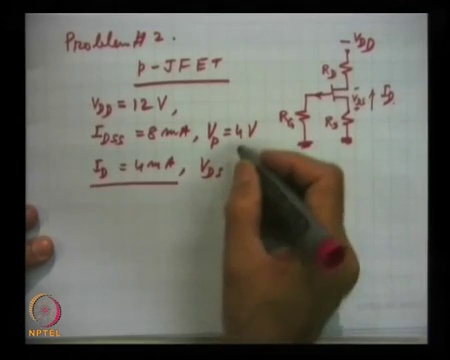 Problem # 2.
p-JFET
V_DD = 12V,
I_DSS = 8mA, V_p = 4V
I_D = 4mA, V_DS
-V_DD
R_D
V_DS
I_D
R_G
R_S
NPTEL